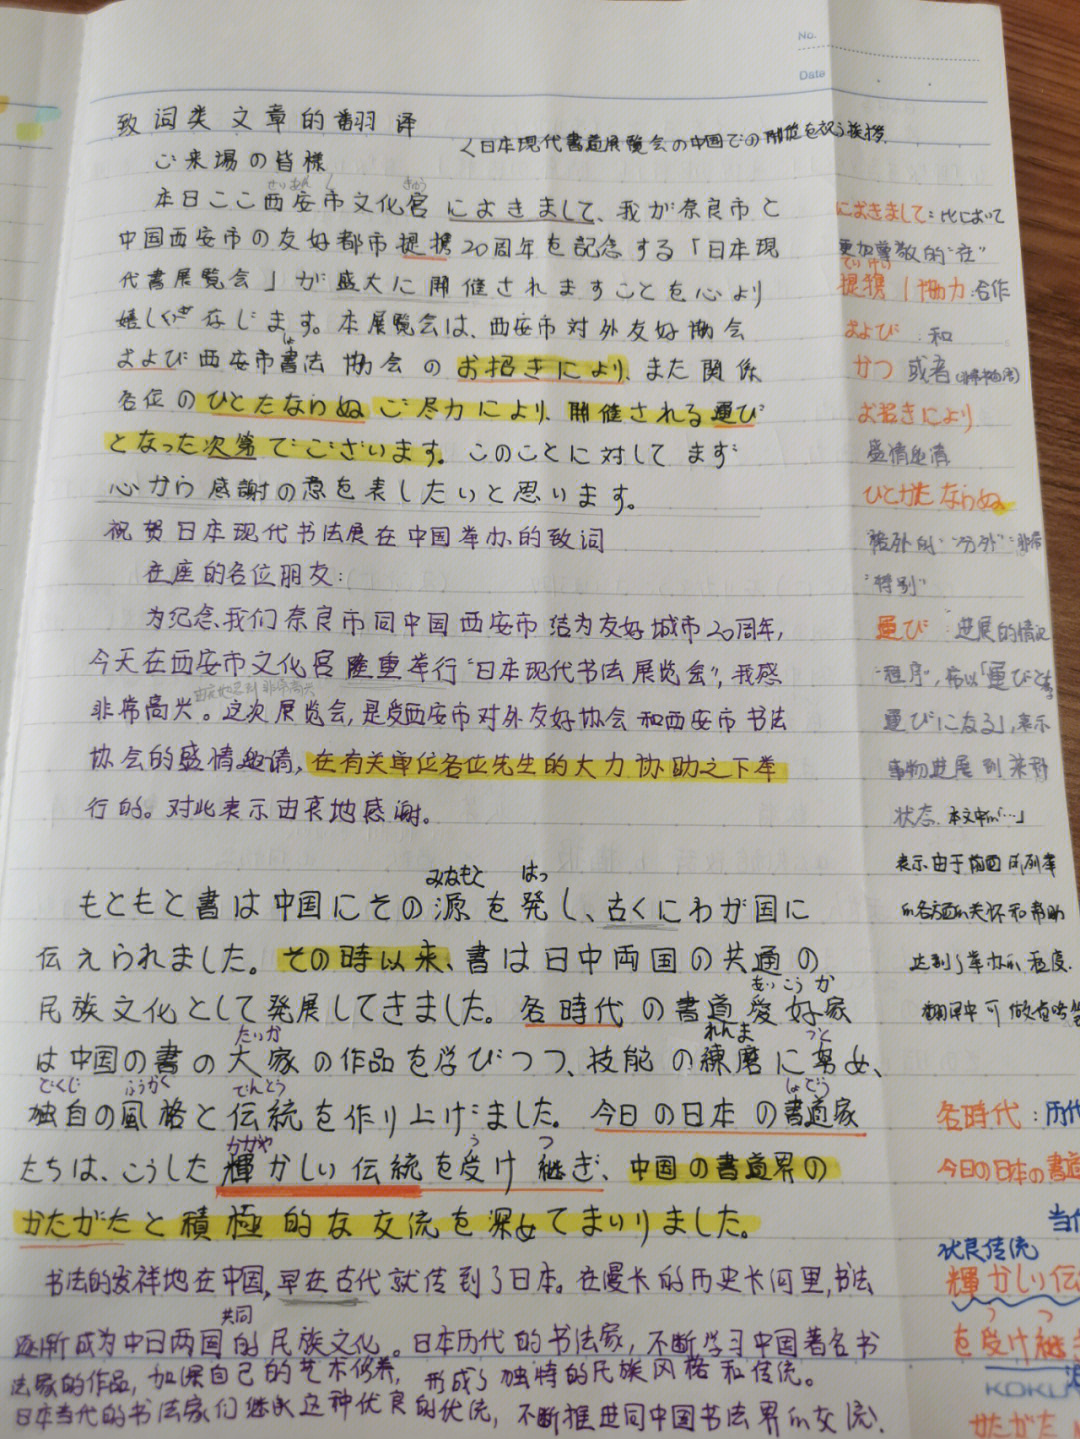 No.
Date
致词类文章的翻译
<日本現代書道展覧会の中国での開催を祝う挨拶
ご来場の皆様
本日ここ西安市文化宮におきまして、我が奈良市と
中国西安市の友好都市提携20周年を記念する「日本現
代書展覧会」が盛大に開催されますことを心より
嬉しくぞんじます。本展覧会は、西安市対外友好協会
および西安市書法協会のお招きにより、また関係
各位のひとたならぬご尽力により、開催される運び
となった次第でございます。このことに対してまず
心から感謝の意を表したいと思います。
祝贺日本现代书法展在中国举办的致词
在座的各位朋友:
为纪念我们奈良市同中国西安市结为友好城市20周年,
今天在西安市文化宫隆重举行“日本现代书法展览会”,我感
非常高兴。这次展览会,是受西安市对外友好协会和西安市书法
协会的盛情邀请,在有关单位各位先生的大力协助之下举
行的。对此表示由衷地感谢。
みなもと はっ
もともと書は中国にその源を発し、古くにわが国に
伝えられました。その時以来、書は日中両国の共通の
民族文化として発展してきました。各時代の書道愛好家
たいか れんま
は中国の書の大家の作品を学びつつ、技能の練磨に努め、
どくじ ふうかく でんとう しょどう
独自の風格と伝統を作り上げました。今日の日本の書道家
かがや う つ
たちは、こうした輝かしい伝統を受け継ぎ、中国の書道界の
かたがたと積極的な交流を深めてまいりました。
书法的发祥地在中国,早在古代就传到了日本。在漫长的历史长河里,书法
共同
逐渐成为中日两国的民族文化。日本历代的书法家,不断学习中国著名书
法家的作品,加深自己的艺术修养,形成了独特的民族风格和传统。
日本当代的书法家们继承这种优良的传统,不断推进同中国书法界的交流。
におきまして:比において
更加尊敬的“在”
ていけい
提携 / 協力:合作
および:和
かつ 或者
お招きにより
盛情邀请
ひとかたならぬ
格外的“分外”非常
“特别”
運び:进展的情况
“程序”,
運びになる」,表示
事物进展到某种
状态。本文中的“…”
表示由于前面所列举
的各方面的关怀和帮助
达到了举办的程度.
翻译中可做省略
各時代:历代
今日の日本の書道
当代
优良传统
輝かしい伝
う つ
を受け継
KOKU
かたがた